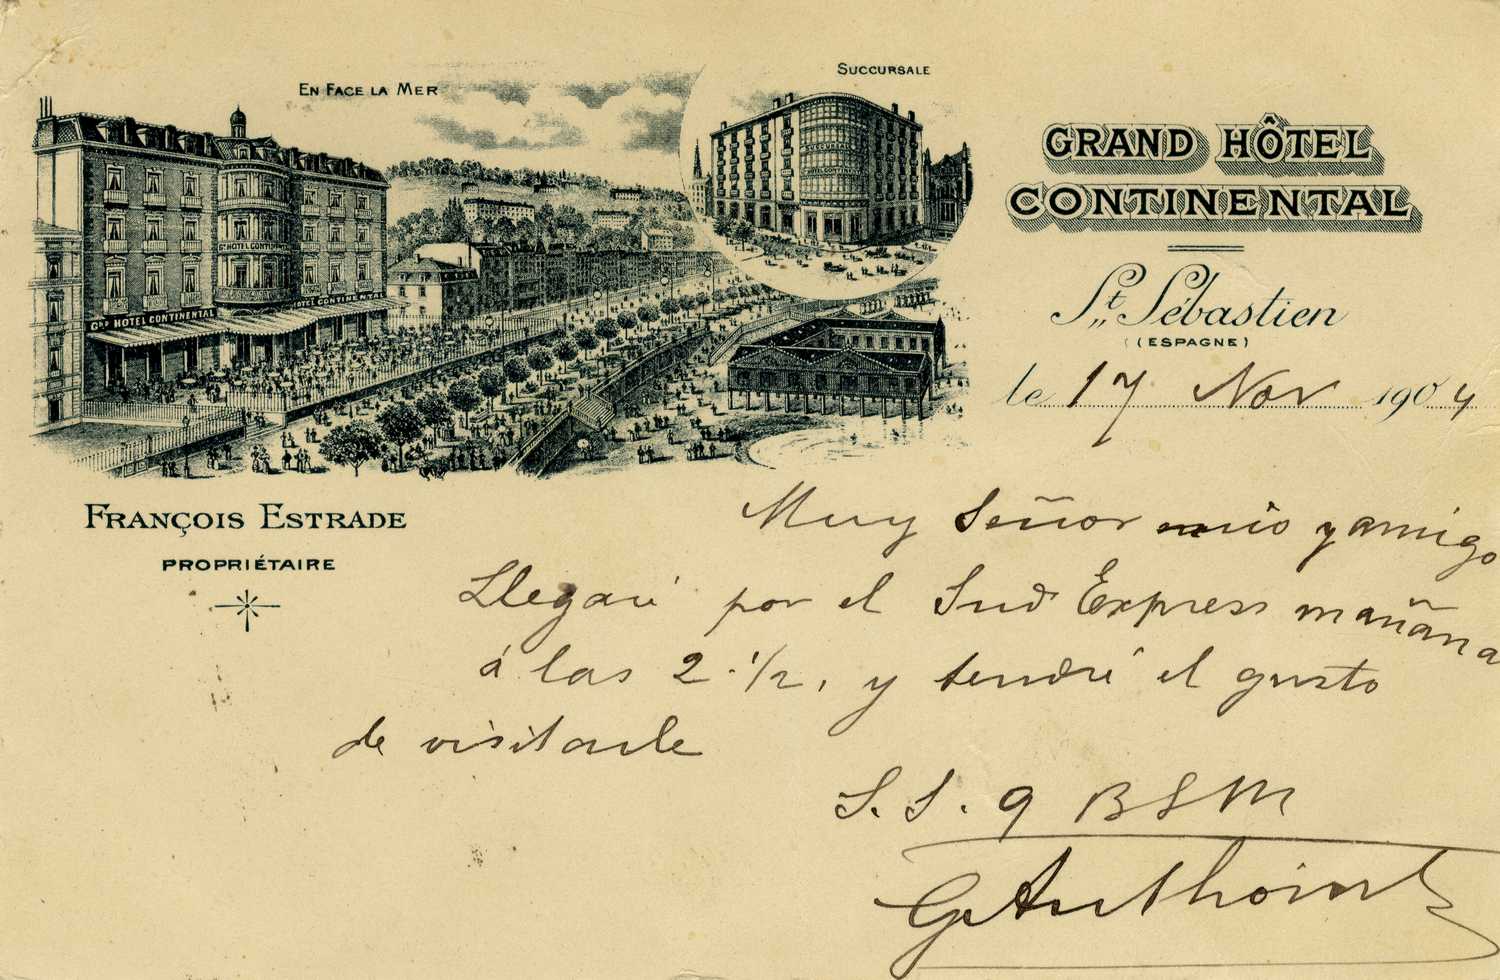 EN FACE LA MER
SUCCURSALE
GRAND HÔTEL
CONTINENTAL
St. Sébastien
(ESPAGNE)
le 17 Nov 1904
HOTEL CONTINENTAL
GND HOTEL CONTINENTAL
HOTEL CONTINENTAL
FRANÇOIS ESTRADE
PROPRIÉTAIRE
Muy Señor mio y amigo
Llegaré por el Sud Express mañana
á las 2 1/2, y tendré el gusto
de visitarle
S. S. q B S M